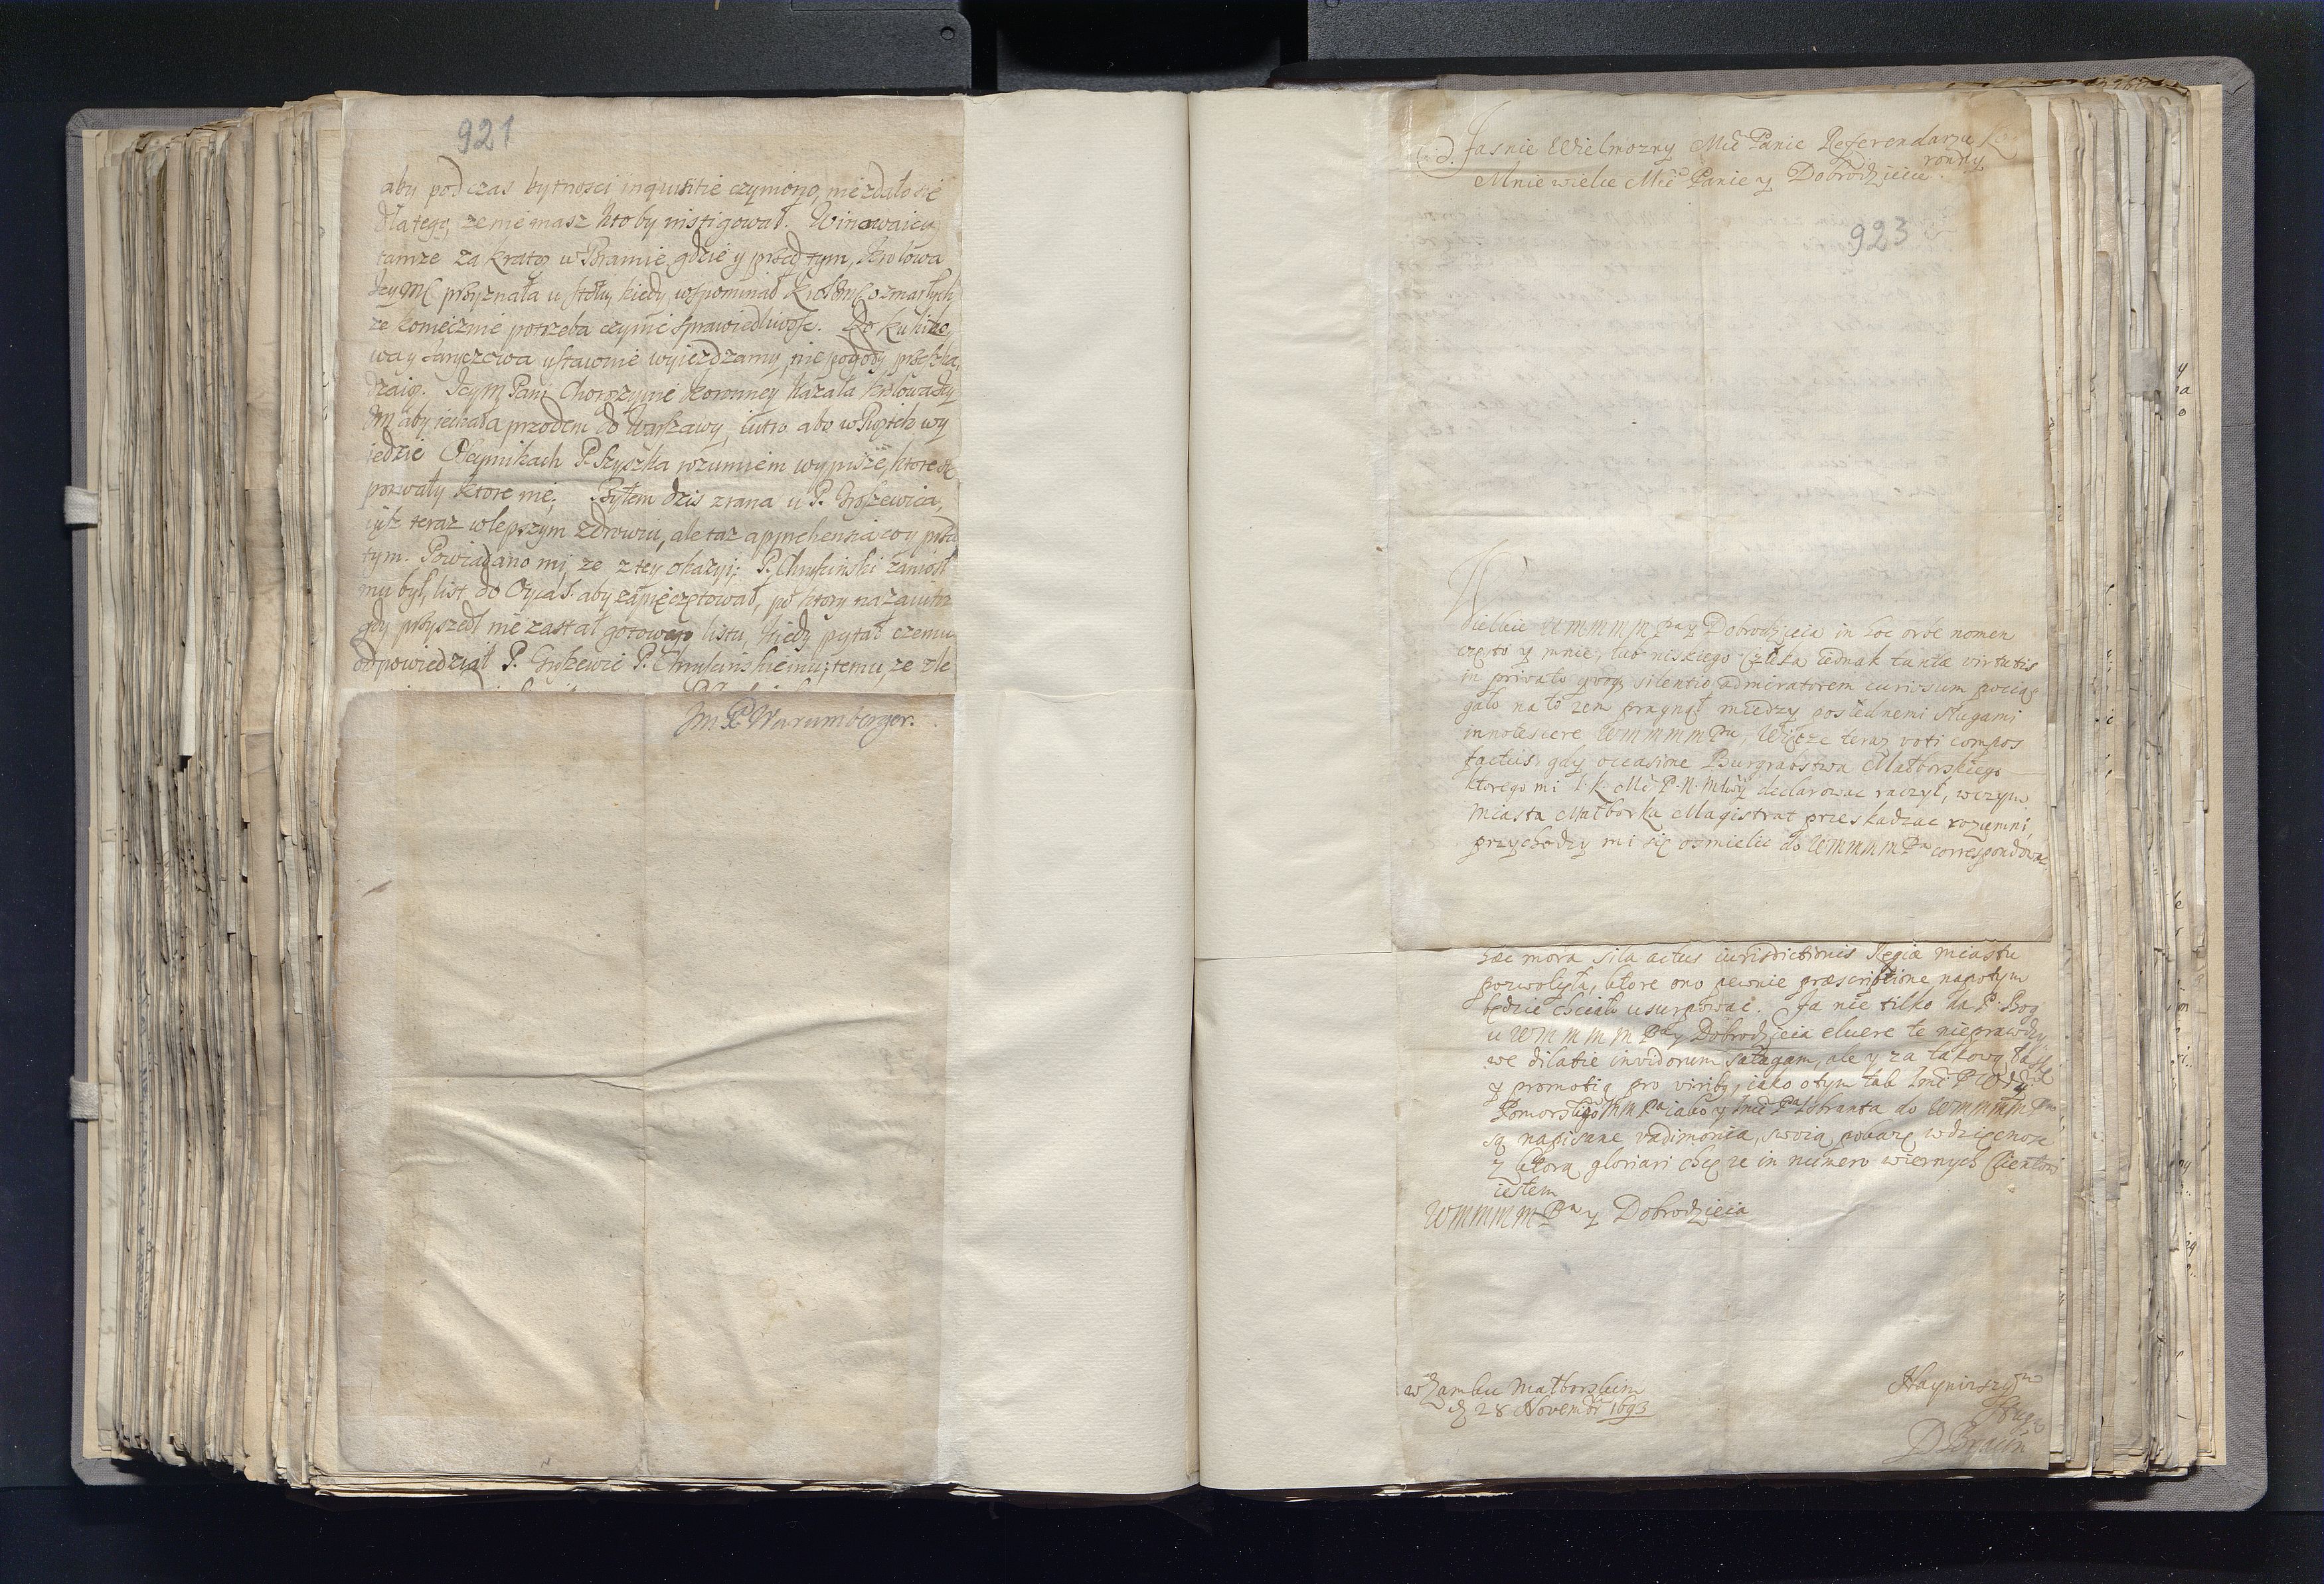 921
aby pod czas bytnosci inquisitie czyniono, nie zdało się
dlatego, ze nie masz kto by instigował. Winowaicy
tamze za kratą w Bramie gdzie y przed tym, Krolowa
przyznała u stołu, kiedy wspominał o zmarłych
ze koniecznie potrzeba czynic sprawiedliwosc. Do Kukize,
wa y Jaryczowa ustawnie wyiezdzamy, niepogody przeszka,
dzaią. Jeym Pani Chorązyne Koronney kazała Krolowa Jey
Mć aby iechała przodem do Warszawy, iutro abo w Piątek wy
iedzie P. Szyszka rozumiem wypisze, ktore się
porwały ktore nie. Byłem dzis z rana u P.
iusz teraz w lepszym zdrowiu, ale taz apprehensia co y przed
tym. Powiadano mi, ze z tey okazyi; P. zaniosł
mu był, list do Oyca S. aby zapieczętował, po ktory nazaiutrz
gdy przyszedł nie zastał gotowego listu, kiedy pytał czemu
odpowiedział P. P. temu, ze zle
Im P. Wurumberger.
Jasnie Wielmozny Mći Panie Referendarzu Ko
ronny
Mnie wielce Mći Panie y Dobrodzieiu
923
Wielkie WMMMM Pa y Dobrodzieia in hoc orbe nomen
czyto y mnie, lub niskiego człeka iednak tantæ virtutis
in privato quoq silentio admiratorem curiosum pocią-
gało na to zem pragnął między poslednemi sługami
innotescere WMMMM Pu, Więcze teraz voti compos
factus, gdy occasione Burgrabstwa Malborskiego
ktorego mi I. K. Mć P. N. Młwy declarowac raczył, w czym
Miasta Malborka Magistrat przeskadzac rozumni,
przychodzy mi się osmielic do WMMMM Pa correspondowac
hæc mora sila actus iurisdictionis Regiæ miastu
pozwolyła, ktore ono pewnie præscriptione napotym
będzie chciało usurpowac. Ja nie tilko da P. Bog
u WMMMM Pa y Dobrodzieia eluere te nieprawdzy,
we dilatie invidorum satagam, ale y za takową łaskę
y promotią pro virib9, iako o tym tak Imći P. Wdy
Pomorskigo MM Pa iako y Imći Pa do WMMMM Pa,
są napisane vadimonia, swoią pokazę wdzięcnosc
z ktorą gloriari chcę ze in numero wiernych Clientow
iestem
WMMMM Pa y Dobrodzieia
w Zamku Malborskim
d 28 Novembr 1693
Naynizszym
Sługą